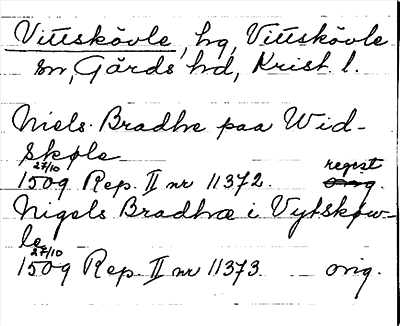 Vittskövle, hg, Vittskövle
sn, Gärds hd, Krist. l.
Niels Bradhe paa Wid-
skøle
27/10
1509 Rep. II nr 11372. regest
orig.
Nigels Bradhæ i Vytskøw-
le
27/10
1509 Rep. II nr 11373 orig.